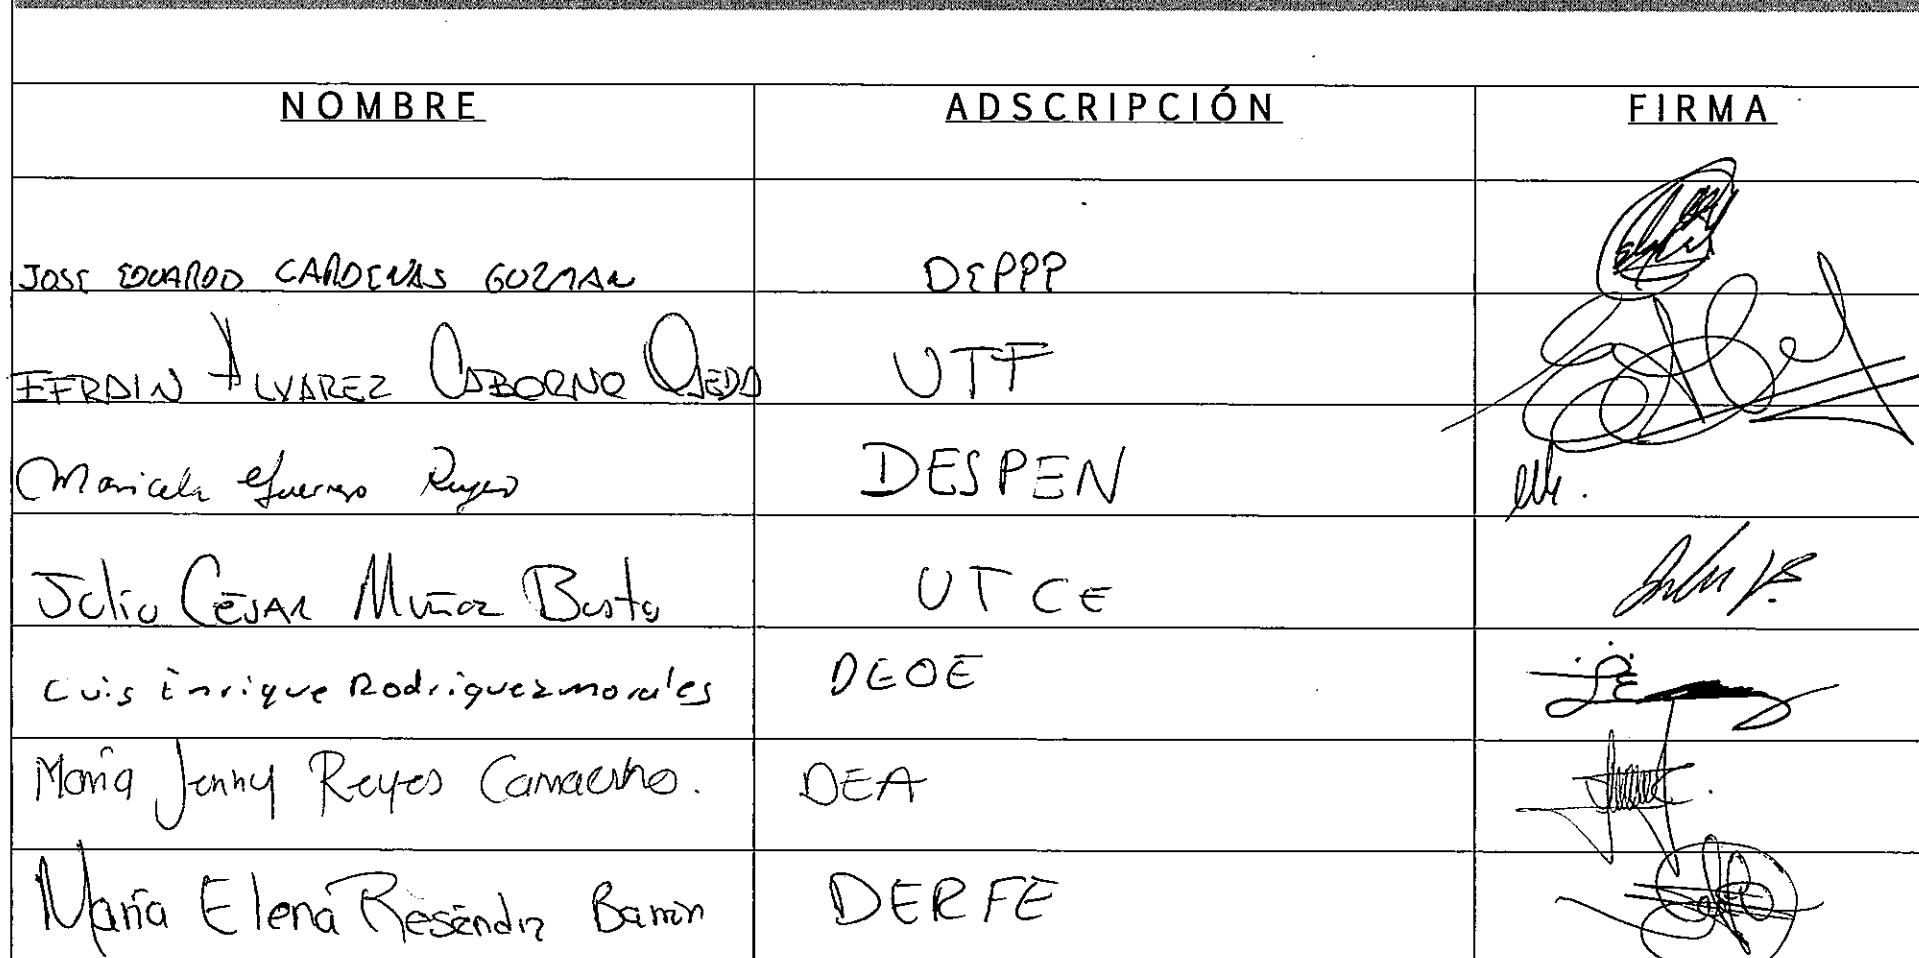 NOMBRE ADSCRIPCIÓN FIRMA
JOSE EDUARDO CARDENAS GUZMAN DEPPP
EFRAIN ALVAREZ CABORNO OJEDA UTF
Maricela Guerrero Reyes DESPEN
Julio CESAR MUÑOZ Busto UTCE
Luis Enrique Rodriguez morales DEOE
María Jenny Reyes Camacho. DEA
María Elena Reséndiz Barrón DERFE